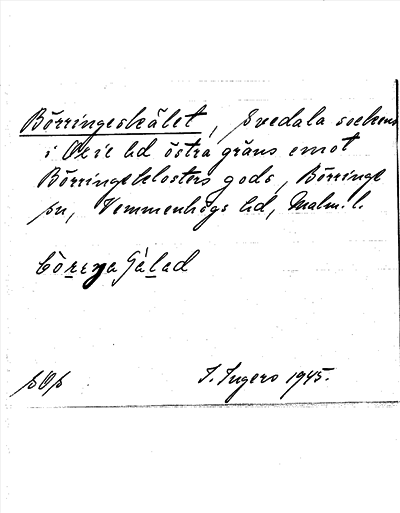 Börringeskälet, Svedala sockens
i Oxie hd östra gräns emot
Börringeklosters gods, Börringe
sn, Vemmenhögs hd, Malm. l.
J. Ingers 1945.